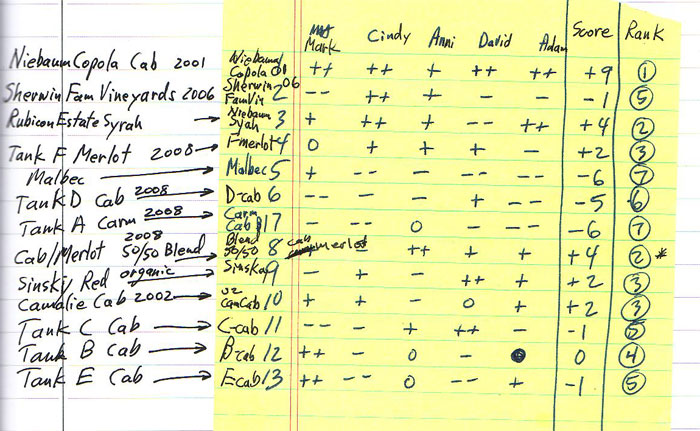 Mark Cindy Anni David Adam Score Rank
Niebaum Copola Cab 2001 Niebaum Copola 01 ++ ++ + ++ ++ +9 1
Sherwin Fam Vineyards 2006 Sherwin 06 Fam Vin 2 -- ++ + - - -1 5
Rubicon Estate Syrah → Niebaum Syah 3 + ++ + -- ++ +4 2
Tank F Merlot 2008 → F merlot 4 0 + + + - +2 3
Malbec → Malbec 5 + -- - -- -- -6 7
Tank D Cab 2008 → D-cab 6 -- - - + -- -5 6
Tank A Carm 2008 → Carm Cab 7 - -- 0 - -- -6 7
Cab/Merlot 2008 50/50 Blend → Blend 50/50 8 cab merlot - ++ + + +4 2 *
Sinsky Red organic → Sinska 9 - + - ++ + +2 3
Camalie Cab 2002 → 02 camCab 10 + + - 0 + +2 3
Tank C Cab → C-cab 11 -- - + ++ - -1 5
Tank B Cab → B-cab 12 ++ - 0 - ● 0 4
Tank E Cab → Ecab 13 ++ -- 0 -- + -1 5